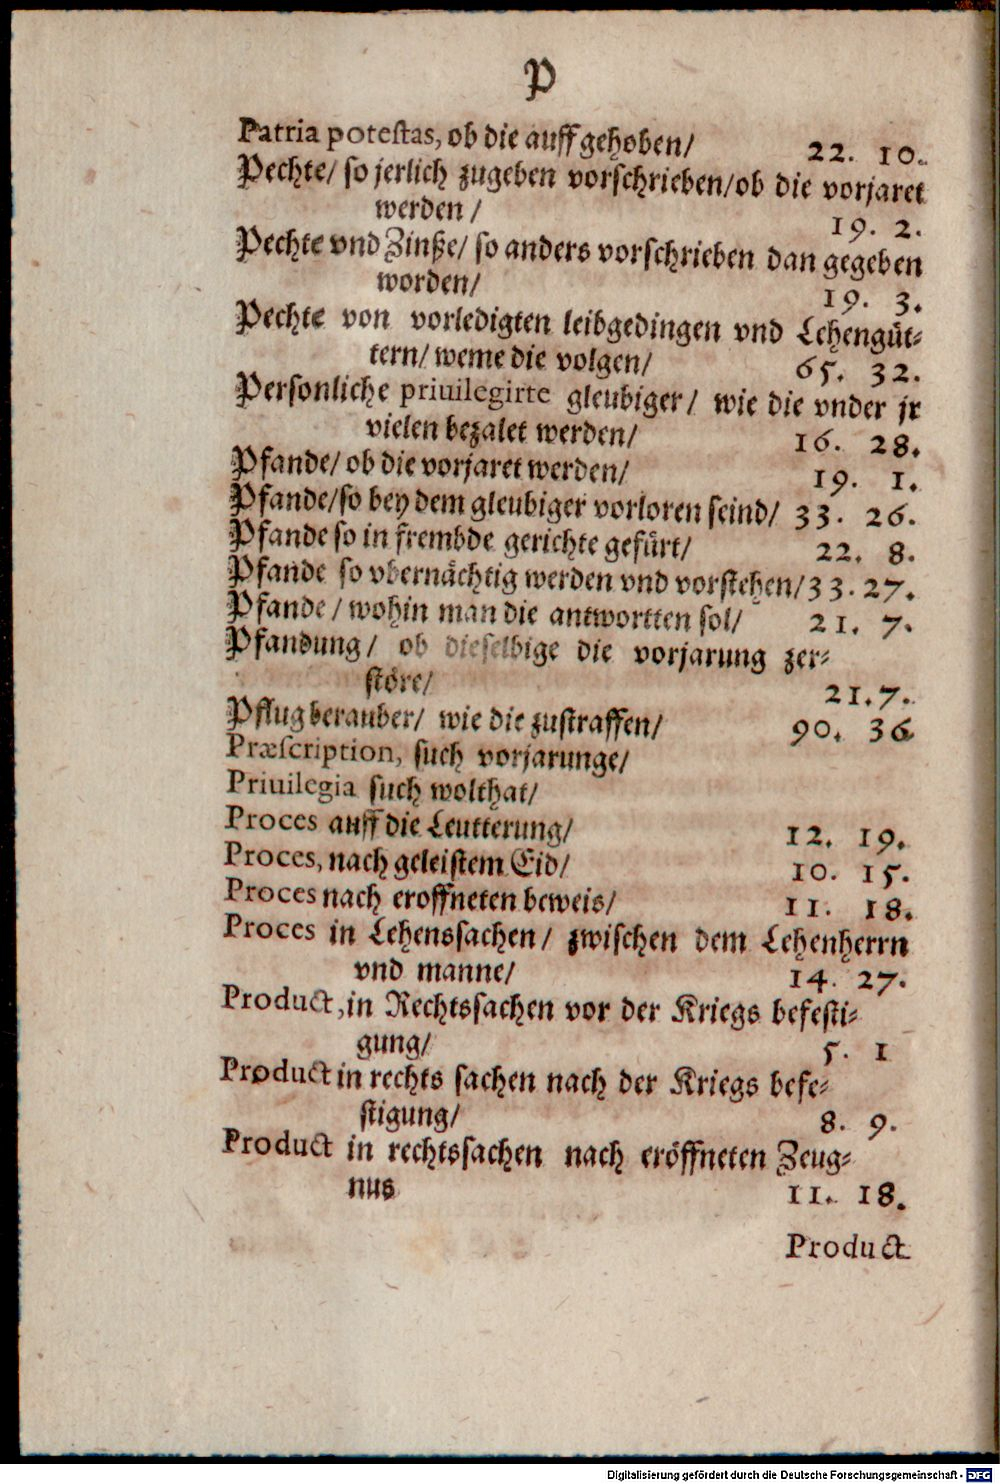 P
Patria potestas, ob die auffgehoben/ 22. 10.
Pechte/ so jerlich zugeben vorschrieben/ob die vorjaret
werden / 19. 2.
Pechte vnd Zinße/ so anders vorschrieben dan gegeben
worden/ 19. 3.
Pechte von vorledigten leibgedingen vnd Lehengüt-
tern/ weme die volgen/ 65. 32.
Personliche priuilegirte gleubiger/ wie die vnder jr
vielen bezalet werden/ 16. 28.
Pfande/ ob die vorjaret werden/ 19. 1.
Pfande/so bey dem gleubiger vorloren seind/ 33. 26.
Pfande so in frembde gerichte gefürt/ 22. 8.
Pfande so vbernächtig werden vnd vorstehen/33.27.
Pfande / wohin man die antwortten sol/ 21. 7.
Pfandung/ ob dieselbige die vorjarung zer-
störe/ 21.7.
Pflugberauber/ wie die zustraffen/ 90. 36
Præscription, such vorjarunge/
Priuilegia such wolthat/
Proces auff die Leutterung/ 12. 19.
Proces, nach geleistem Eid/ 10. 15.
Proces nach eroffneten beweis/ 11. 18.
Proces in Lehenssachen/ zwischen dem Lehenherrn
vnd manne/ 14. 27.
Product, in Rechtssachen vor der Kriegs befesti-
gung/ 5. 1
Product in rechts sachen nach der Kriegs befe-
stigung/ 8. 9.
Product in rechtssachen nach eröffneten Zeug-
nus 11. 18.
Product
Digitalisierung gefördert durch die Deutsche Forschungsgemeinschaft - DFG